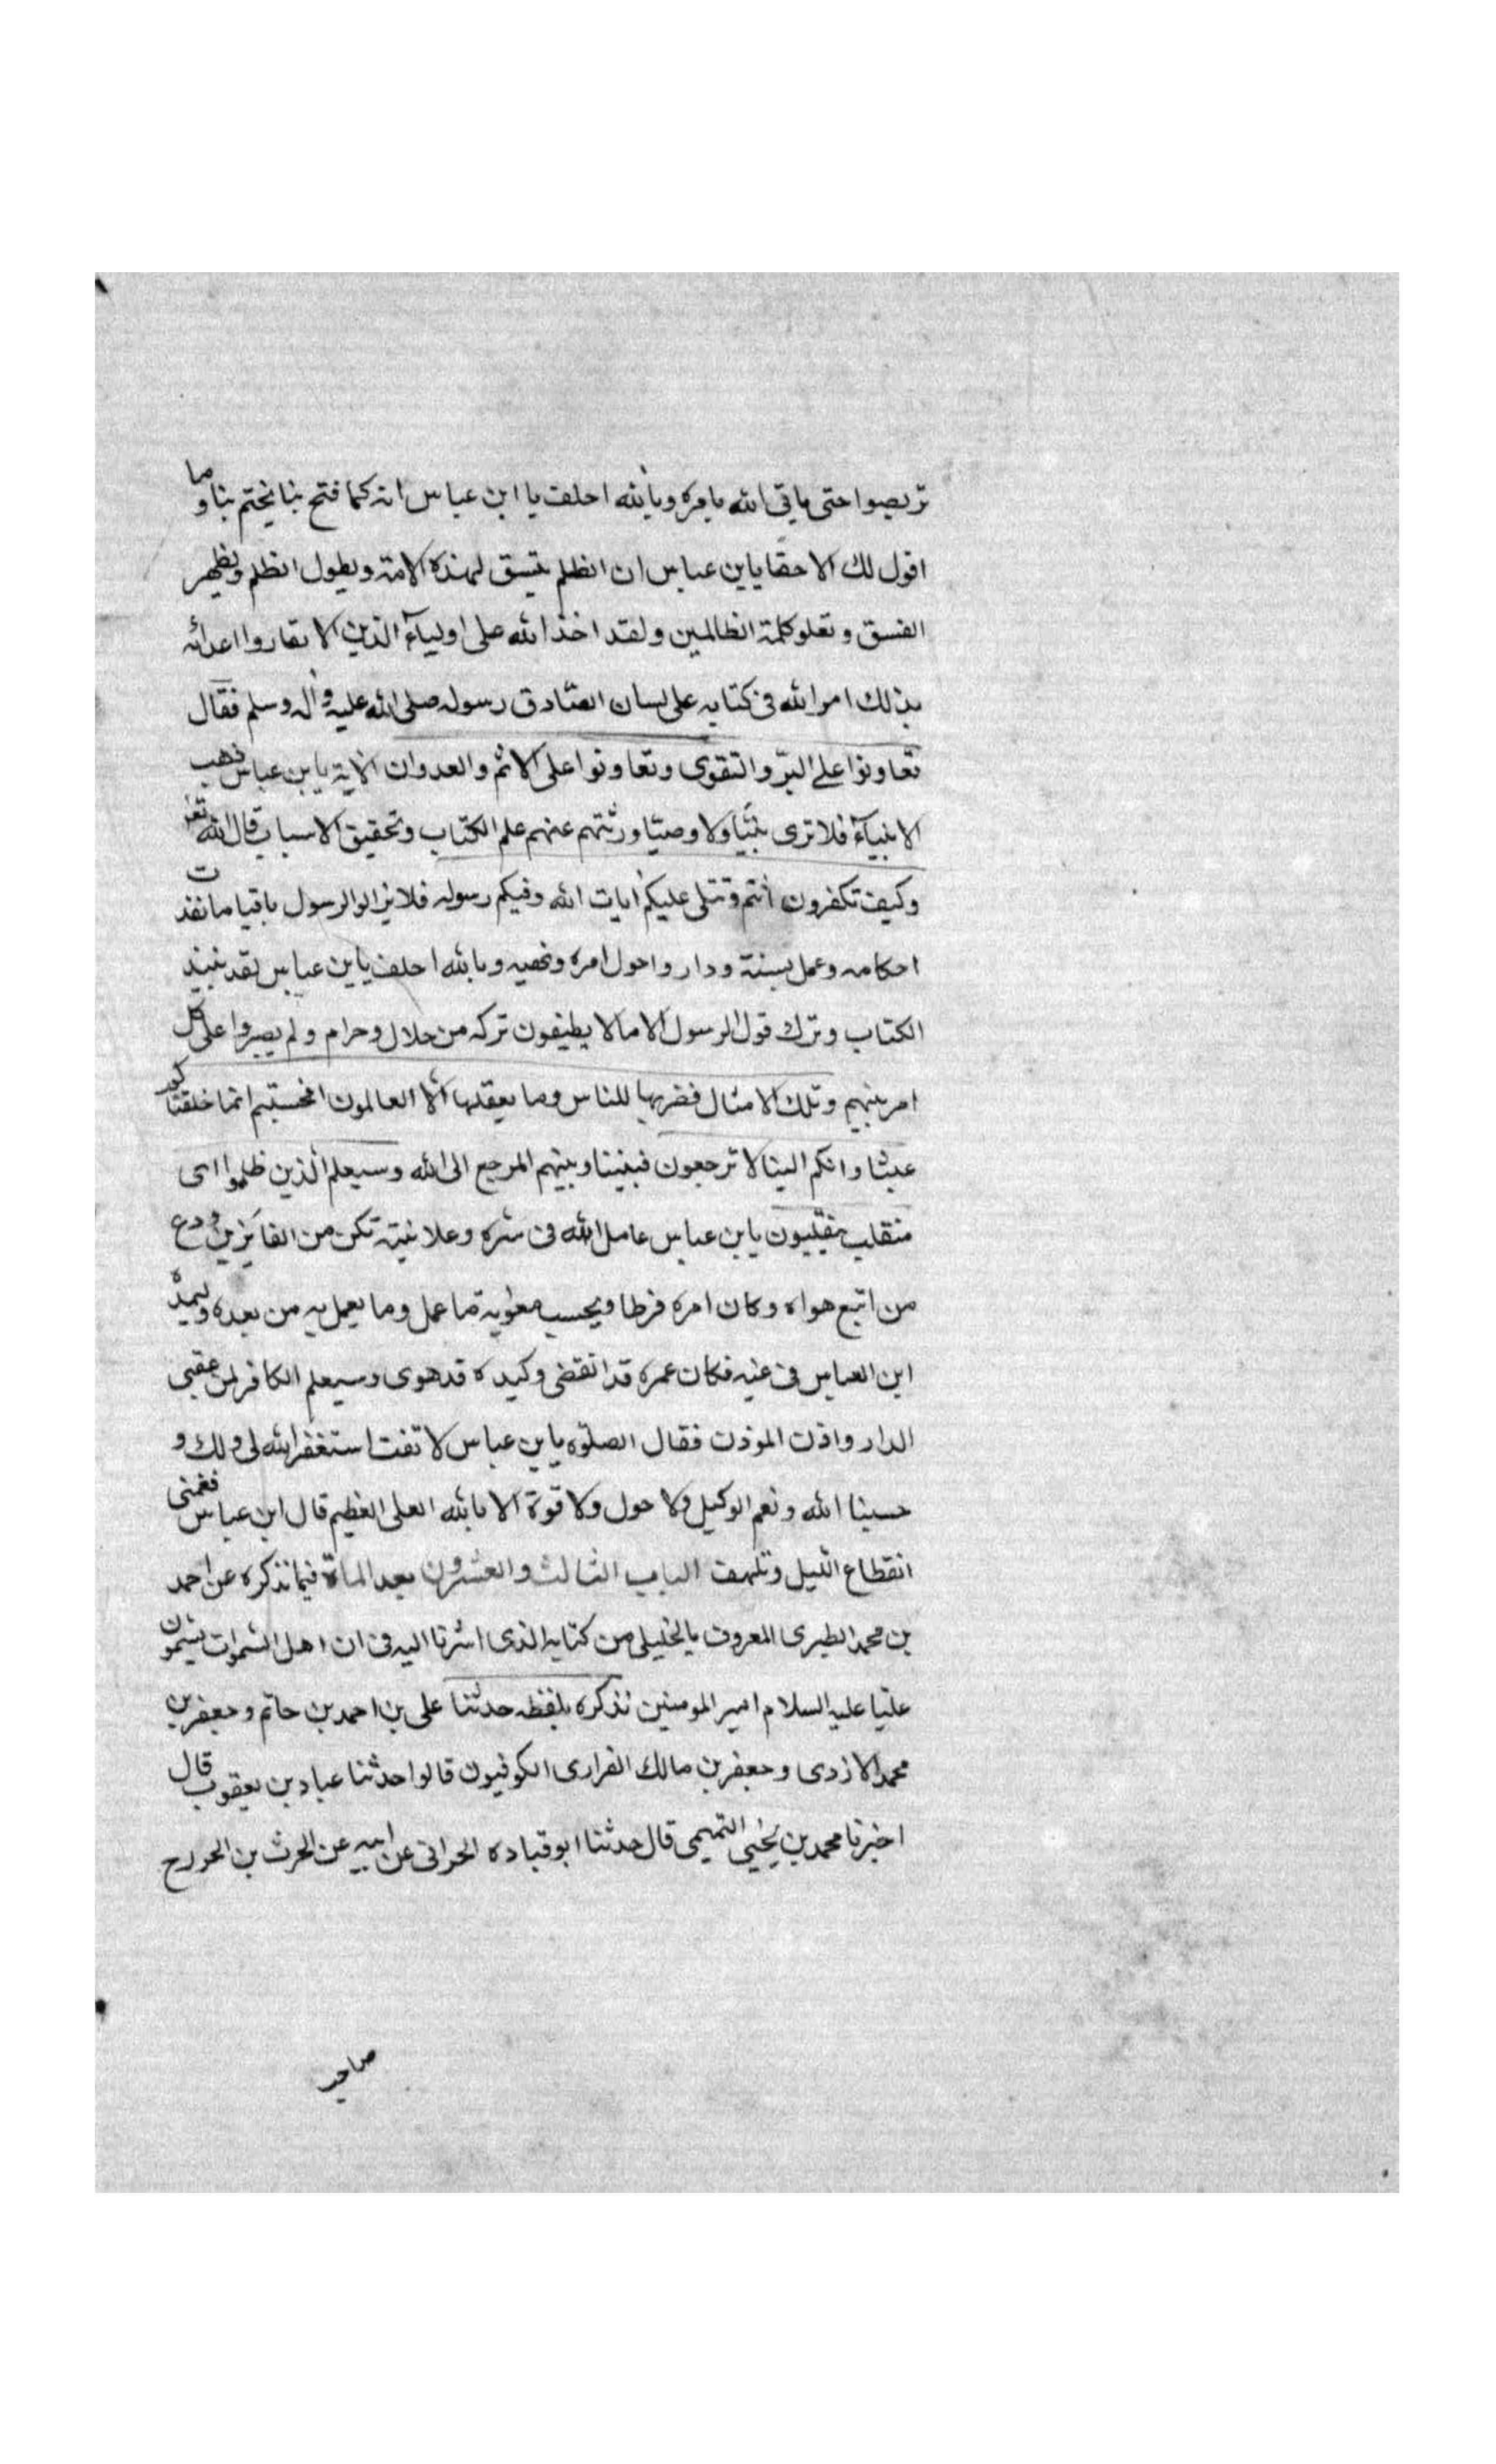 تربصوا حتى ياتى الله بامره وبالله احلف يا ابن عباس انه كما فتح بنا يختم بنا وما
اقول لك الا حقا يابن عباس ان الظلم يتسق لهذه الامة ويطول الظلم ويظهر
الفسق وتعلو كلمة الظالمين ولقد اخذ الله على اولياء الذين لا يقاروا اعدائه
بذلك امر الله فى كتابه على لسان الصادق رسوله صلى الله عليه وآله وسلم فقال
تعاونوا على البرّ والتقوى وتعاونوا على الاثم والعدوان الاية يابن عباس ذهب
الانبيآء فلا ترى نبيّا ولا وصيّا ورثتهم عنهم علم الكتاب وتحقيق الاسباب قال الله تعـ
وكيف تكفرون انتم وتتلى عليكم ايات الله وفيكم رسوله فلا يزالوا الرسول باقيا ما نفذت
احكامه وعمل بسنته ودار واحول امره ونهيه وبالله احلف يابن عباس لقد نبيذ
الكتاب وترك قول الرسول الا ما لا يطيقون تركه من حلال وحرام ولم يصبروا على كل
امر بينهم وتلك الامثال فضربها للناس وما يعقلها الا العالمون افحسبتم انما خلقناكم
عبثا وانكم الينا لا ترجعون فبيننا وبينهم المرجع الى الله وسيعلم الذين ظلموا اى
منقلب ينقلبون يابن عباس عامل الله فى سّره وعلانيته تكن من الفايزين ودع
من اتبع هواه وكان امره فرطا ويحسب معوية ما عمل وما يعمل به من بعده وليمدّه
ابن العباس فى غيه فكان عمره قد انقضى وكيده قد هوى وسيعلم الكافر لمن عقبى
الدار واذن الموذن فقال الصلوه يابن عباس لا تفت استغفر الله لى ولك و
حسبنا الله ونعم الوكيل ولا حول ولا قوة الا بالله العلى العظيم قال ابن عباس فغمنى
انقطاع الليل وتلهف الباب الثالث والعشرون بعد المائة فيما نذكره عن احمد
بن محمد الطبرى المعروف بالخليلى من كتابه الذى اشرنا اليه فى ان اهل السموات يسمون
عليّا عليه السلام امير المومنين نذكره بلفظه حدثنا على بن احمد بن حاتم وجعفر بن
محمد الازدى وجعفر بن مالك الفرارى الكوفيون قالوا حدثنا عباد بن يعقوب قال
اخبرنا محمد بن يحيى التميمى قال حدثنا ابو قباده الحرانى عن ابيه عن الحرث بن الحورح
صاحب